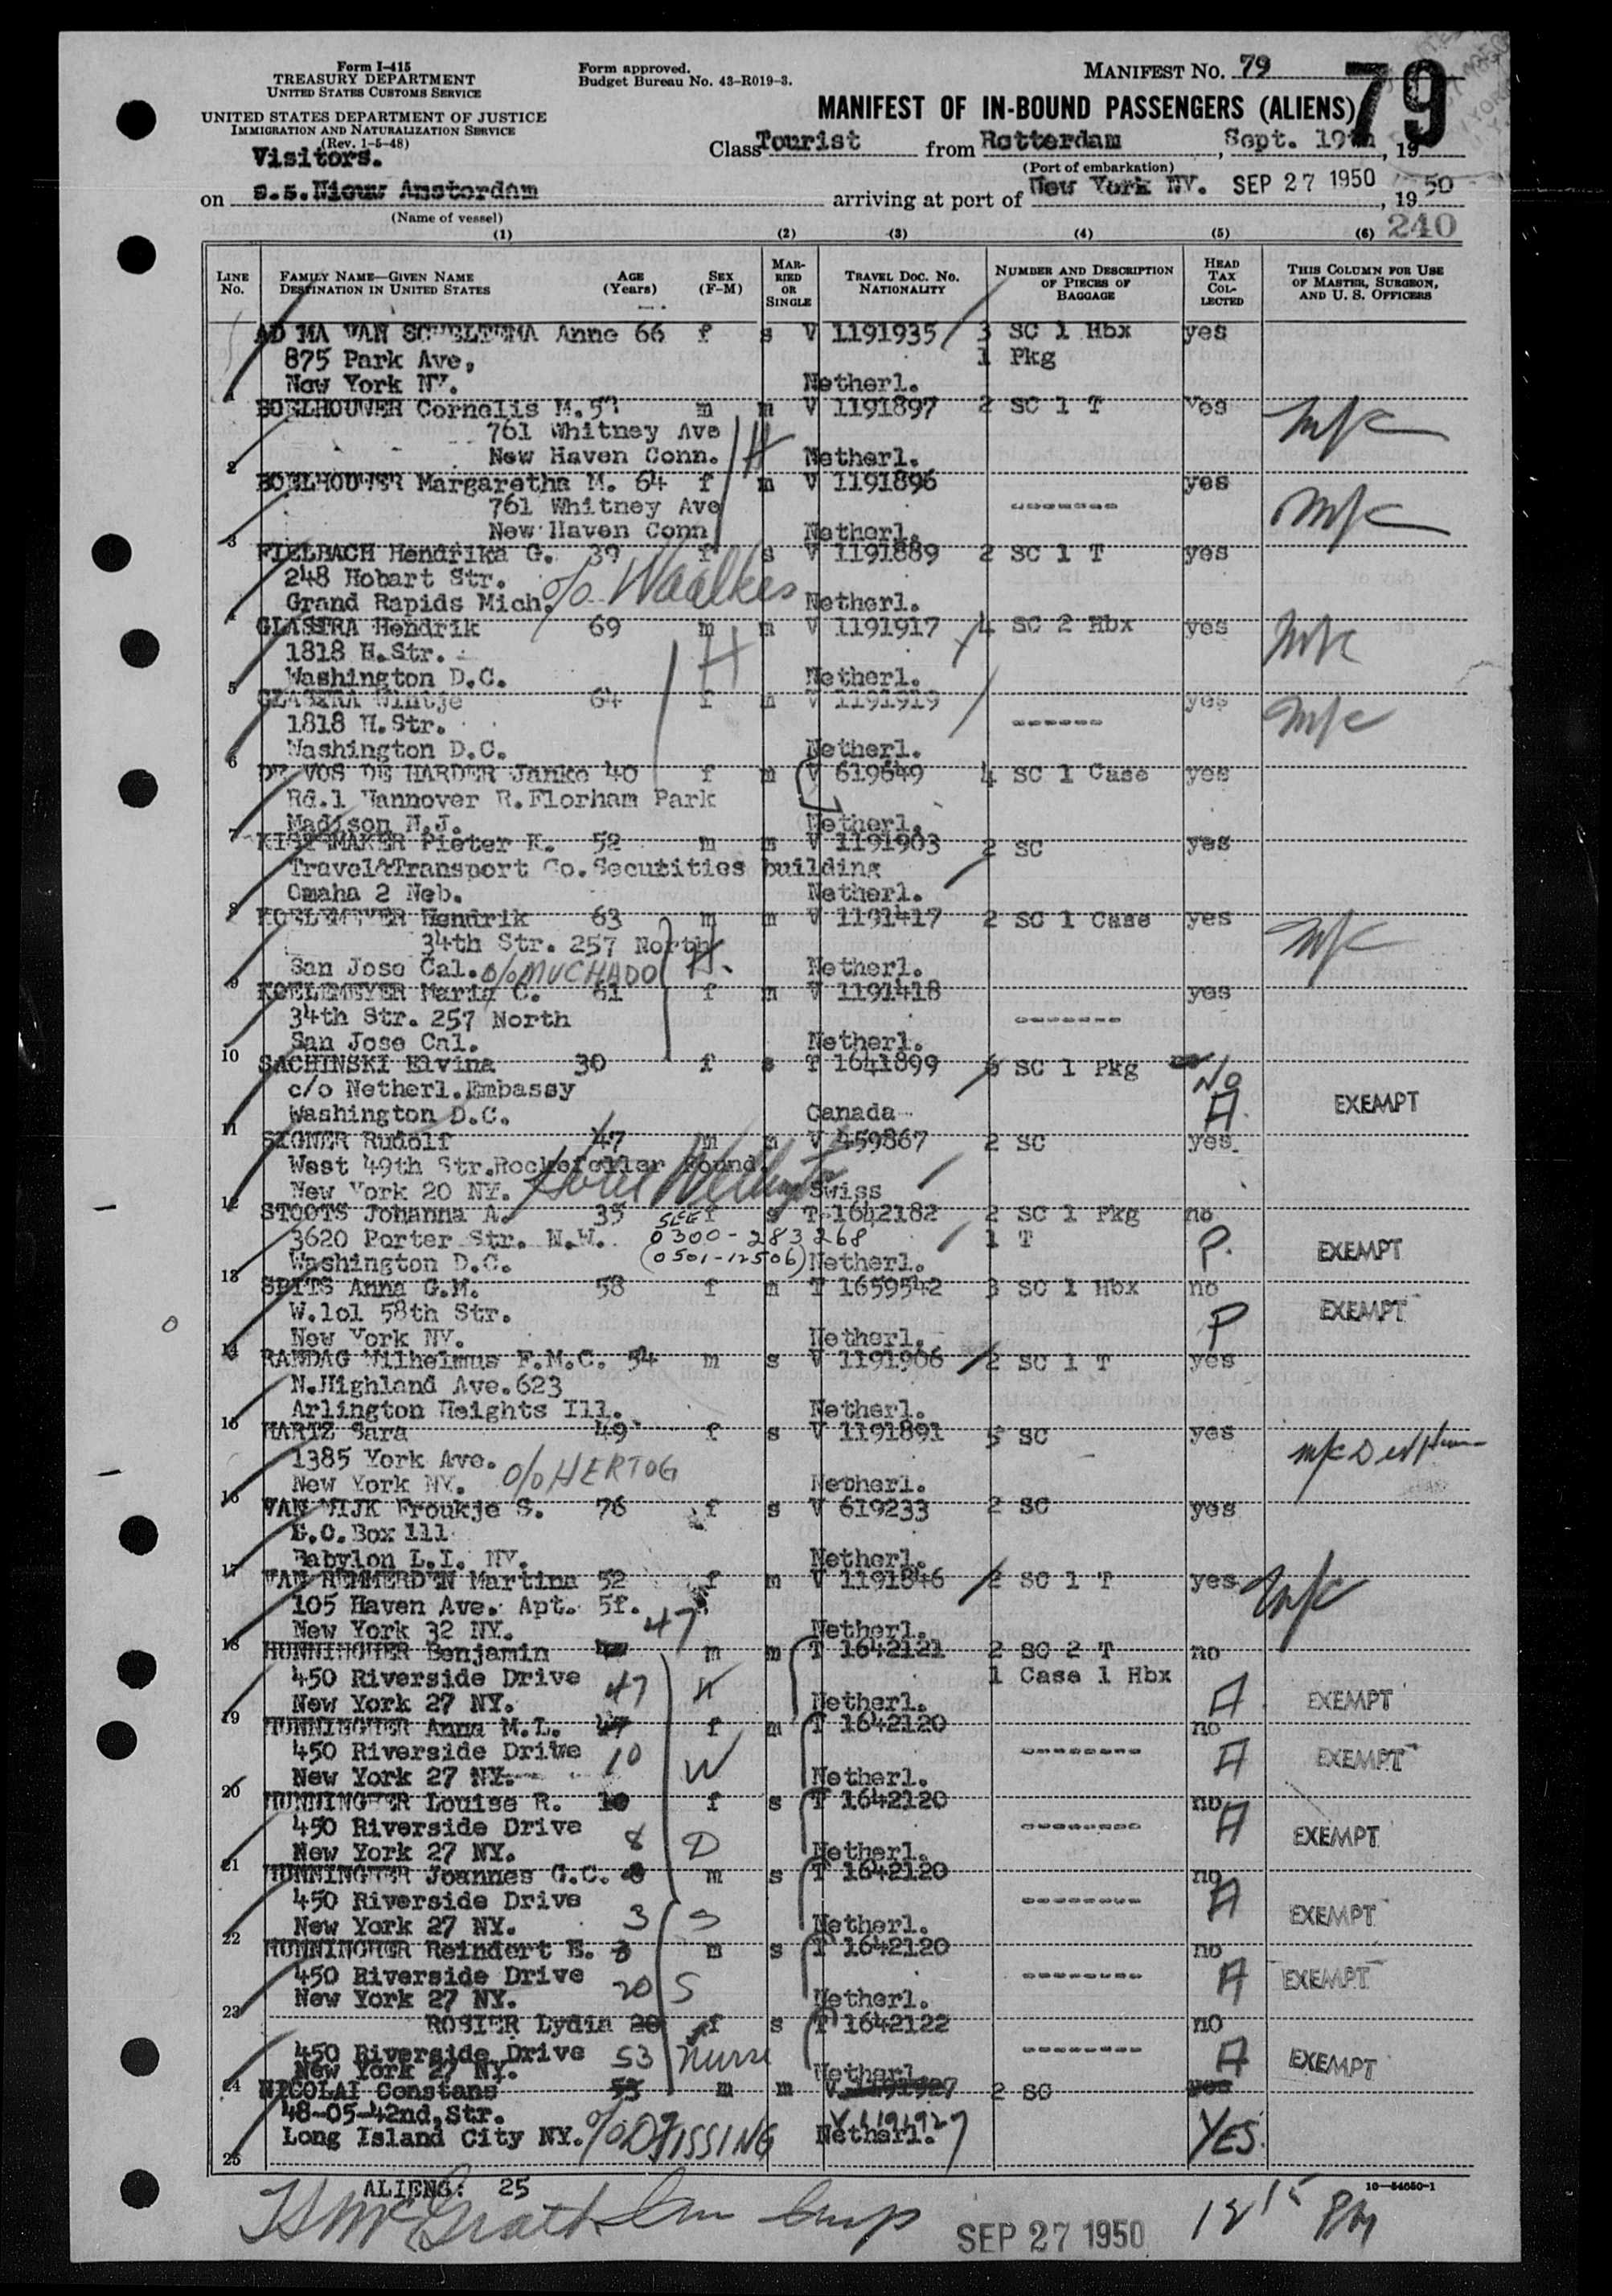 Form I-415
TREASURY DEPARTMENT
UNITED STATES CUSTOMS SERVICE
UNITED STATES DEPARTMENT OF JUSTICE
IMMIGRATION AND NATURALIZATION SERVICE
(Rev. 1-5-48)
Form approved.
Budget Bureau No. 43-R019-3.
MANIFEST NO. 79
79
MANIFEST OF IN-BOUND PASSENGERS (ALIENS)
Visitors.
Class Tourist from Rotterdam, Sept. 19th, 19
(Port of embarkation)
on s.s.Nieuw Amsterdam arriving at port of New York NY. SEP 27 1950, 1950
(Name of vessel)
240
(1) (2) (3) (4) (5) (6)
LINE NO. FAMILY NAME—GIVEN NAME DESTINATION IN UNITED STATES AGE (YEARS) SEX (F-M) MARRIED OR SINGLE TRAVEL DOC. NO. NATIONALITY NUMBER AND DESCRIPTION OF PIECES OF BAGGAGE HEAD TAX COLLECTED THIS COLUMN FOR USE OF MASTER, SURGEON, AND U. S. OFFICERS
AD MA VAN SCHELTEMA Anne 66 f s V 1191935 3 SC 1 Hbx yes
875 Park Ave, 1 Pkg
1 New York NY. Netherl.
BOELHOUWER Cornelis M. m m V 1191897 2 SC 1 T yes
761 Whitney Ave H
2 New Haven Conn. Netherl.
BOELHOUWER Margaretha M. 64 f m V 1191896 yes
761 Whitney Ave -------
3 New Haven Conn Netherl.
FIELBACH Hendrika G. 39 f s V 1191889 2 SC 1 T yes
248 Hobart Str. c/o Waalkes
4 Grand Rapids Mich. Netherl.
GLASTRA Hendrik 69 m m V 1191917 4 SC 2 Hbx yes
1818 H.Str. H
5 Washington D.C. Netherl.
GLASTRA Wintje 64 f m V 1191919 yes
1818 H.Str. ------
6 Washington D.C. Netherl.
DE VOS DE HARDER Janke 40 f m V 619649 4 SC 1 Case yes
Rd.1 Hannover R.Florham Park
7 Madison N.J. Netherl.
KISTEMAKER Pieter K. 52 m m V 1191903 2 SC yes
Travel&Transport Co.Secutities building
8 Omaha 2 Neb. Netherl.
KOELEMEYER Hendrik 63 m m V 1191417 2 SC 1 Case yes
34th Str. 257 North H.
9 San Jose Cal. c/o MUCHADO Netherl.
KOELEMEYER Maria C. 61 f m V 1191418 yes
34th Str. 257 North -------
10 San Jose Cal. Netherl.
SACHINSKI Elvina 30 f s T 1641899 6 SC 1 Pkg No
c/o Netherl.Embassy A. EXEMPT
11 Washington D.C. Canada
SIGNER Rudolf 47 m m V 459867 2 SC yes
West 49th Str.Rockefeller Found.
12 New York 20 NY. Hotel Wellington Swiss
STOOTS Johanna A. 35 f s T 1642182 2 SC 1 Pkg no
SEE
3620 Porter Str. N.W. 0300-283268 1 T P. EXEMPT
13 Washington D.C. (0501-12506) Netherl.
SPITS Anna G.M. 58 f m T 1659542 3 SC 1 Hbx no
W.lol 58th Str. P EXEMPT
14 New York NY. Netherl.
RANDAG Wilhelmus F.M.C. 54 m s V 1191906 2 SC 1 T yes
N.Highland Ave.623
15 Arlington Heights Ill. Netherl.
HARTZ Sara 49 f s V 1191891 5 SC yes
1385 York Ave. c/o HERTOG
16 New York NY. Netherl.
VAN WIJK Froukje S. 76 f s V 619233 2 SC yes
Box 111
17 Babylon L.I. NY. Netherl.
VAN HEMMERDEN Martina 52 f m V 1191846 2 SC 1 T yes
105 Haven Ave. Apt. 5f.
18 New York 32 NY. Netherl.
HUNNINGHER Benjamin 47 m m T 1642121 2 SC 2 T no
450 Riverside Drive H 1 Case 1 Hbx A. EXEMPT
19 New York 27 NY. Netherl.
HUNNINGHER Anna M.L. 47 f m T 1642120 no
450 Riverside Drive W -------- A EXEMPT
20 New York 27 NY. Netherl.
HUNNINGHER Louise R. 10 f s T 1642120 no
450 Riverside Drive D -------- A EXEMPT
21 New York 27 NY. Netherl.
HUNNINGHER Joannes G.C. 8 m s T 1642120 no
450 Riverside Drive S -------- A EXEMPT
22 New York 27 NY. Netherl.
HUNNINGHER Reindert E. 3 m s T 1642120 no
450 Riverside Drive S -------- A EXEMPT
23 New York 27 NY. Netherl.
ROSIER Lydia 20 f s T 1642122 no
450 Riverside Drive Nurse -------- A EXEMPT
24 New York 27 NY. Netherl.
NICOLAI Constans 53 m m V 1191927 2 SC yes
48-05-42nd,Str. V 1191927
25 Long Island City NY. Netherl. YES.
ALIENS: 25
10—54050-1
SEP 27 1950 12 15 PM